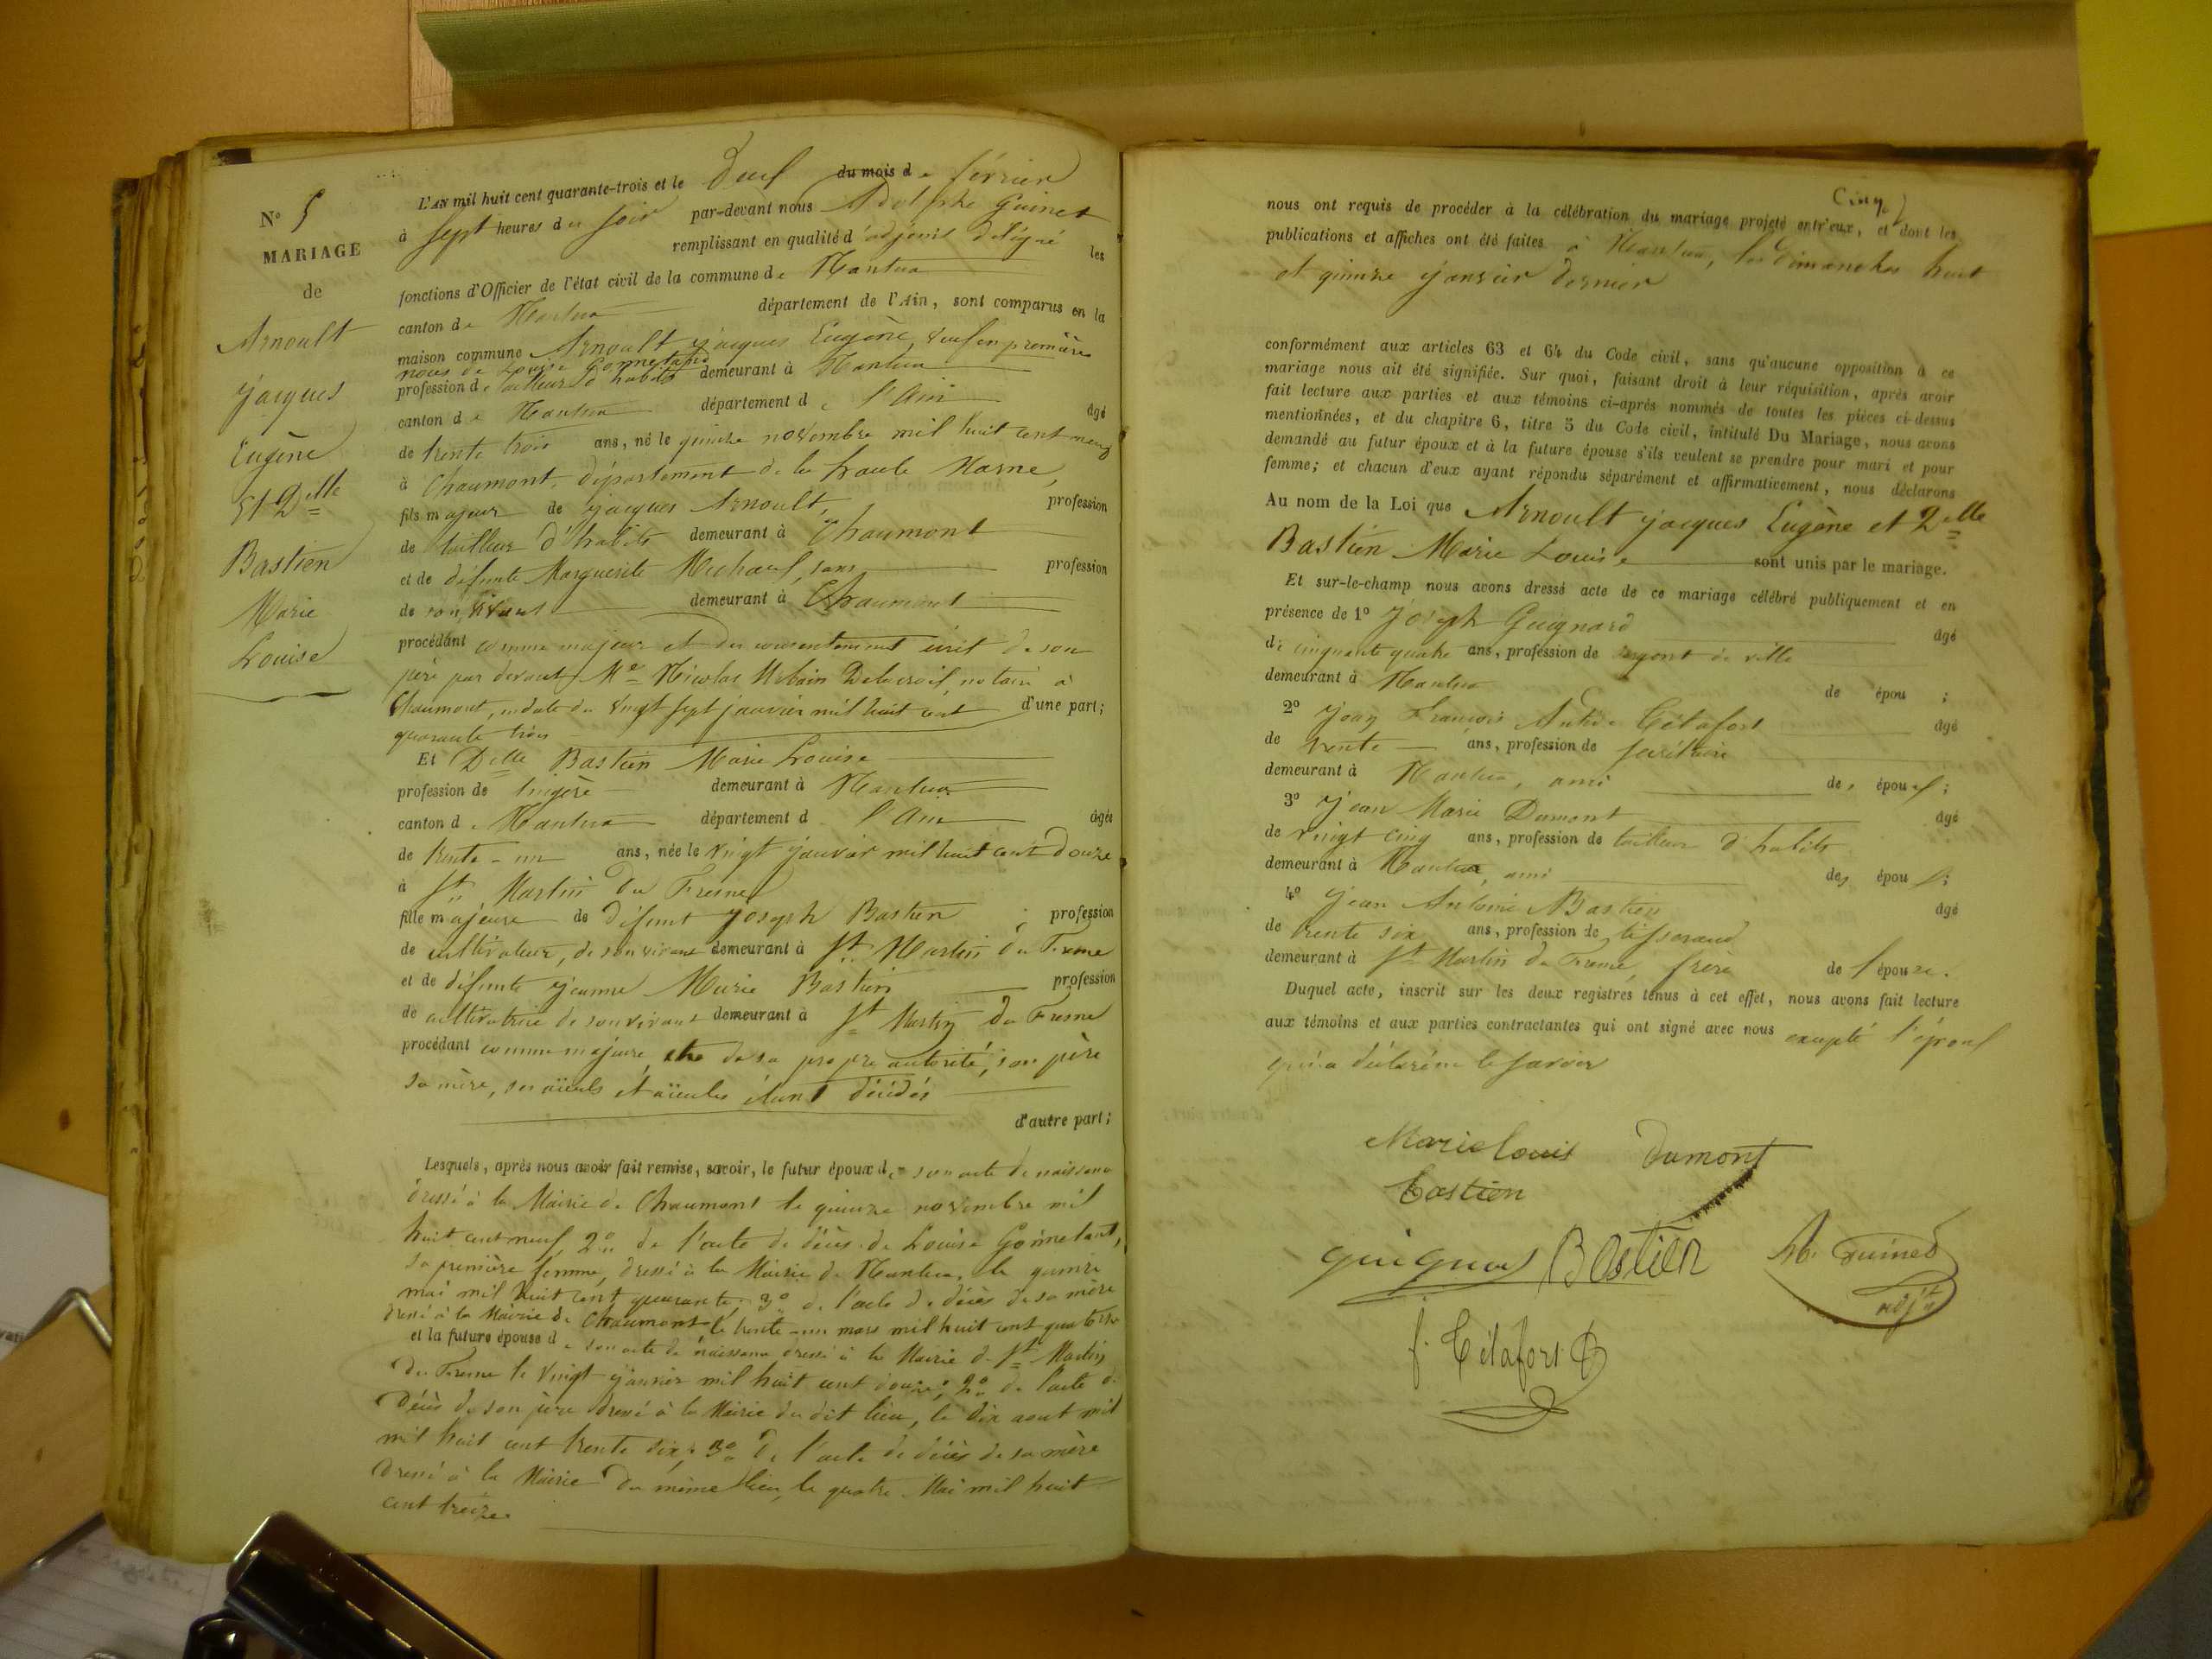 N° 5
MARIAGE
de
Arnoult
Jacques
Eugène
Et Delle
Bastien
Marie
Louise
L'AN mil huit cent quarante-trois et le Deux du mois de février
à sept heures du soir par-devant nous Adolphe Guinet
remplissant en qualité d'adjoint délégué les
fonctions d'Officier de l'état civil de la commune de Nantua
canton de Nantua département de l'Ain, sont comparus en la
maison commune Arnoult Jacques Eugène, veuf en premières
noces de Louise
profession de tailleur d'habits demeurant à Nantua
canton de Nantua département de l'Ain âgé
de trente trois ans, né le quinze novembre mil huit cent neuf
à Chaumont, département de la haute Marne,
fils majeur de Jacques Arnoult, profession
de tailleur d'habits demeurant à Chaumont
et de défunte Marguerite sans profession
de son vivant demeurant à Chaumont
procédant comme majeur et du consentement écrit de son
père par devant Me Nicolas Urbain Delacroix, notaire à
Chaumont, en date du vingt sept janvier mil huit cent d'une part;
quarante trois
Et Delle Bastien Marie Louise
profession de lingère demeurant à Nantua
canton de Nantua département de l'Ain âgée
de trente-un ans, née le vingt janvier mil huit cent douze
à St Martin du Fresne
fille majeure de défunt Joseph Bastien ; profession
de cultivateur, de son vivant demeurant à St Martin du Fresne
et de défunte Jeanne Marie Bastien profession
de cultivatrice de son vivant demeurant à St Martin du Fresne
procédant comme majeure, et de sa propre autorité, son père
sa mère, ses aïeuls et aïeules étant décédés
d'autre part;
Lesquels, après nous avoir fait remise, savoir, le futur époux de son acte de naissance
dressé à la Mairie de Chaumont le quinze novembre mil
huit cent neuf, 2° de l'acte de décès de Louise
sa première femme, dressé à la Mairie de Nantua, le quinze
mai mil huit cent quarante; 3° de l'acte de décès de sa mère
dressé à la Mairie de Chaumont, le trente-un mars mil huit cent quatorze
et la future épouse de son acte de naissance dressé à la Mairie de St Martin
du Fresne le vingt janvier mil huit cent douze; 2° de l'acte de
Décès de son père dressé à la Mairie du dit lieu, le dix aout mil
mil huit cent trente six; 3° de l'acte de décès de sa mère
dressé à la Mairie du même lieu, le quatre Mai mil huit
cent treize.
Cinq
nous ont requis de procéder à la célébration du mariage projeté entr'eux, et dont les
publications et affiches ont été faites à Nantua, les dimanches huit
et quinze janvier dernier
conformément aux articles 63 et 64 du Code civil, sans qu'aucune opposition à ce
mariage nous ait été signifiée. Sur quoi, faisant droit à leur réquisition, après avoir
fait lecture aux parties et aux témoins ci-après nommés de toutes les pièces ci-dessus
mentionnées, et du chapitre 6, titre 5 du Code civil, intitulé Du Mariage, nous avons
demandé au futur époux et à la future épouse s'ils veulent se prendre pour mari et pour
femme; et chacun d'eux ayant répondu séparément et affirmativement, nous déclarons
Au nom de la Loi que Arnoult Jacques Eugène et Delle
Bastien Marie Louise sont unis par le mariage.
Et sur-le-champ nous avons dressé acte de ce mariage célébré publiquement et en
présence de 1° Joseph Guignard âgé
de cinquante quatre ans, profession de sergent de ville
demeurant à Nantua de épou ;
2° Jean François Tétafort âgé
de trente ans, profession de secrétaire
demeurant à Nantua, ami des époux;
3° Jean Marie Dumont âgé
de vingt cinq ans, profession de tailleur d'habits
demeurant à Nantua, ami des époux;
4° Jean Antoine Bastien âgé
de trente six ans, profession de tisserand
demeurant à St Martin du Fresne, frère de l'épouse.
Duquel acte, inscrit sur les deux registres tenus à cet effet, nous avons fait lecture
aux témoins et aux parties contractantes qui ont signé avec nous excepté l'époux
qui a déclaré ne le savoir
Marie louis Dumont
Bastien
Bastien Guinet
adjt
f. Tétafort